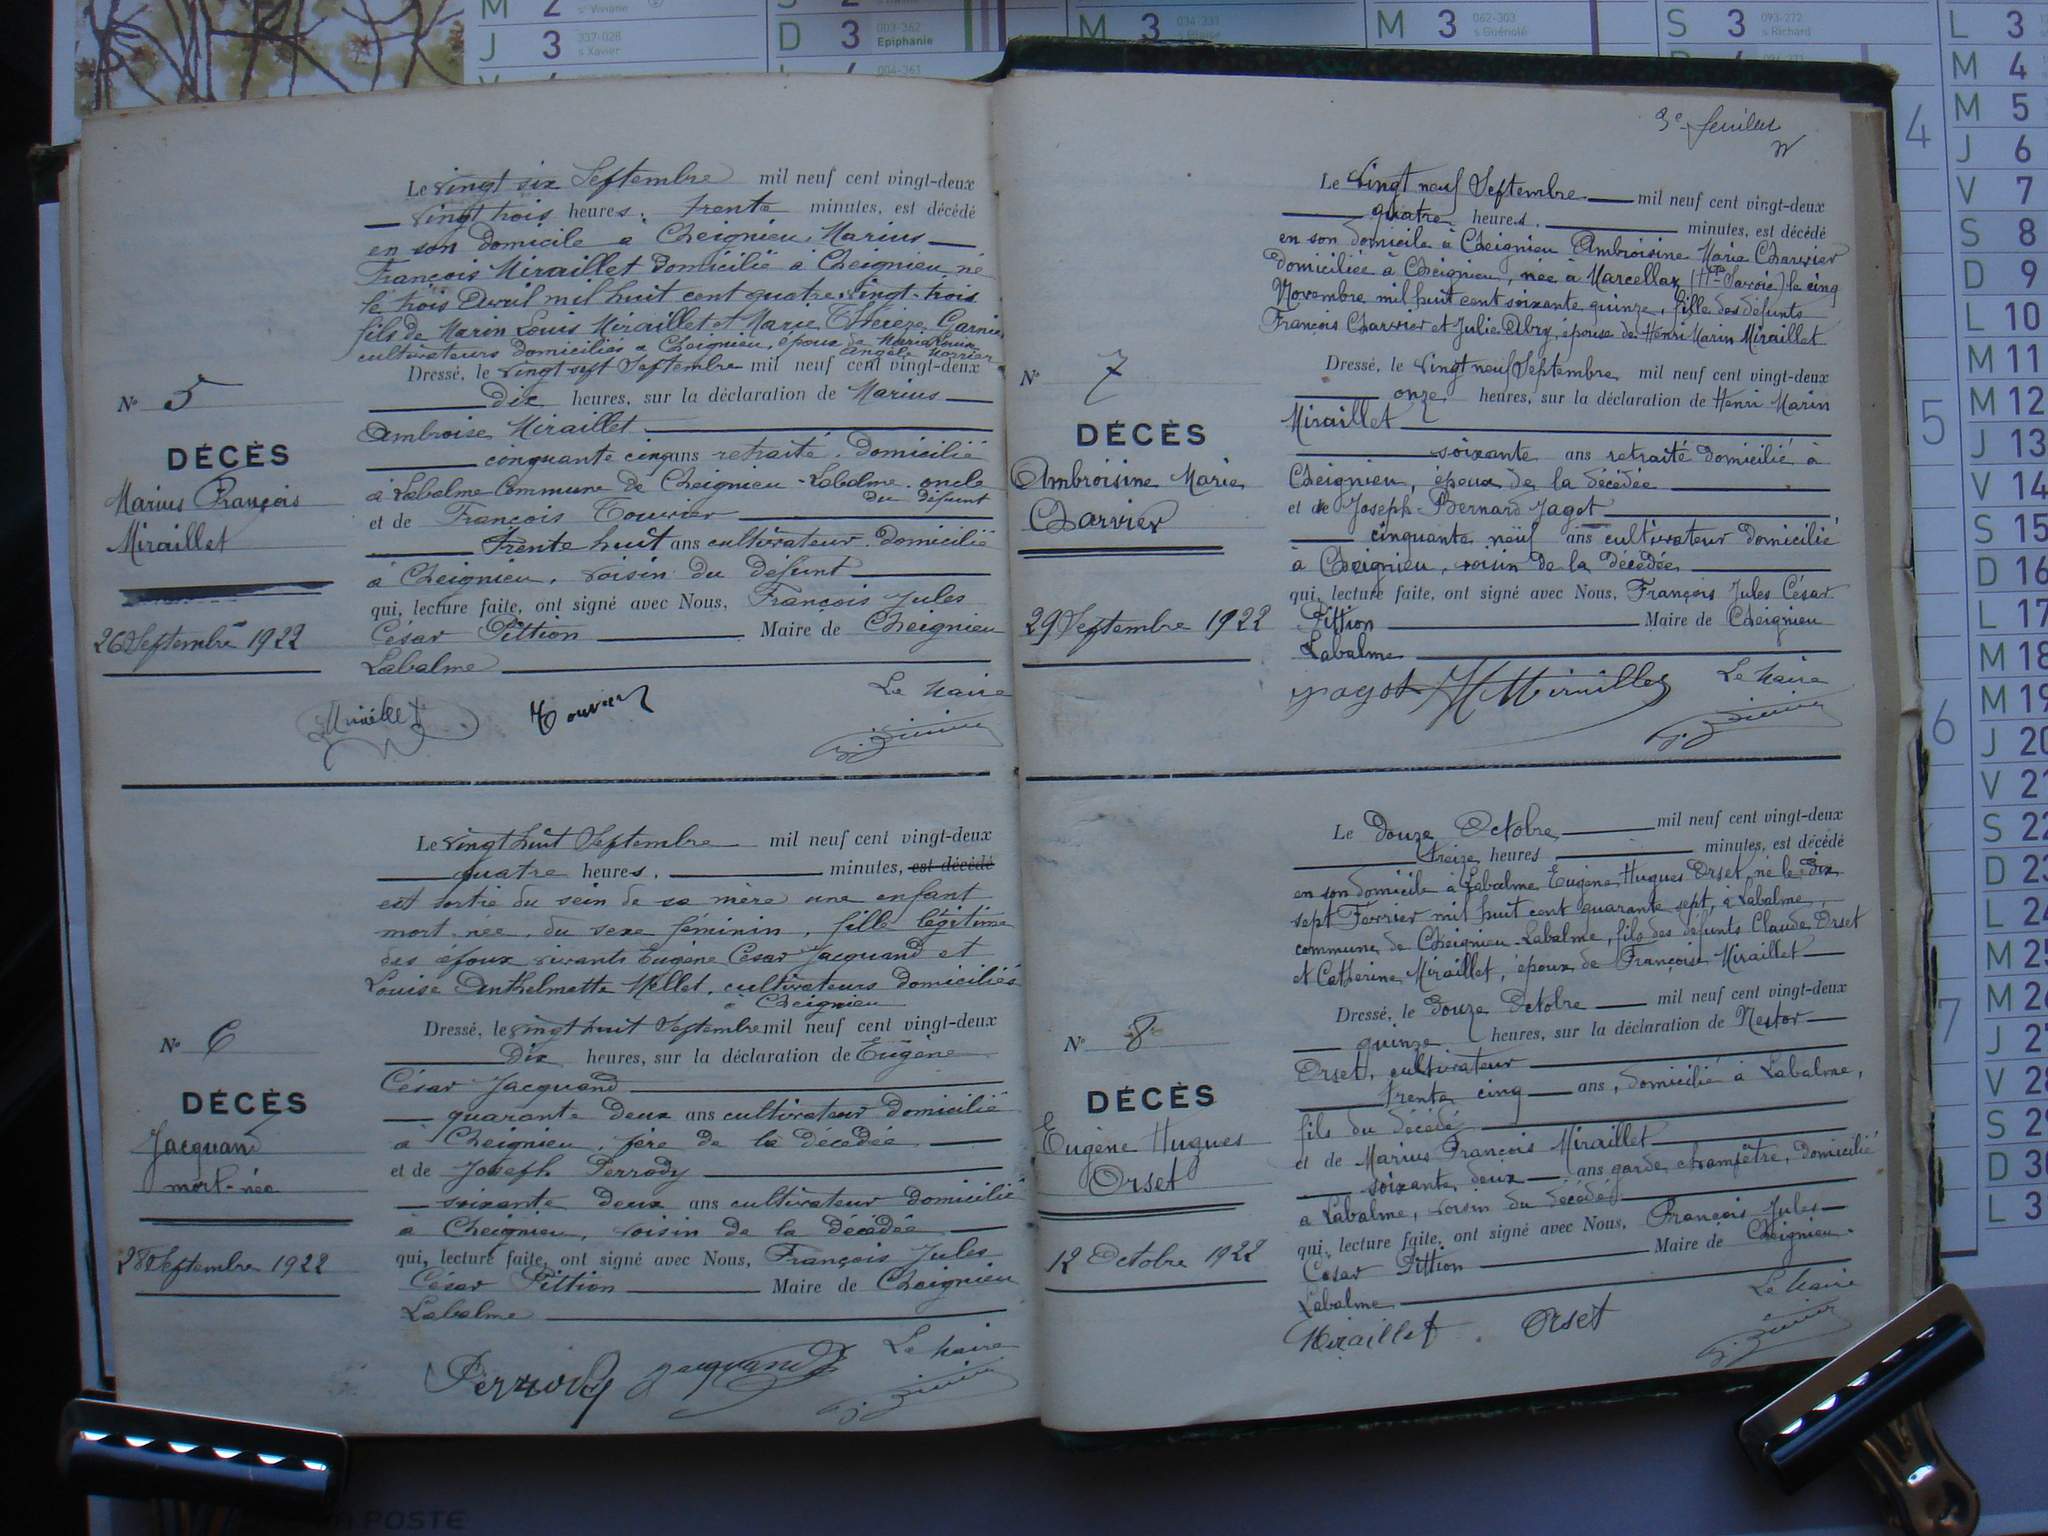 M 2
J 3 337-028
s Xavier
D 3 003-362
Epiphanie
004-361
M 3 034-331
s Blaise
M 3 062-303
s Guénolé
S 3 093-272
s Richard
L 3
M 4
M 5
J 6
V 7
S 8
D 9
L 10
M 11
M 12
J 13
V 14
S 15
D 16
L 17
M 18
M 19
J 20
V 21
S 22
D 23
L 24
M 25
M 26
J 27
V 28
S 29
D 30
L 3
4
5
6
7
Le vingt six Septembre mil neuf cent vingt-deux
vingt trois heures, trente minutes, est décédé
en son domicile à Cheignieu, Marius
François Miraillet domicilié à Cheignieu, né
le trois Avril mil huit cent quatre-vingt-trois
fils de Marin Louis Miraillet et Marie Thérèze Garnier
cultivateurs domiciliés à Cheignieu, époux de Marie Louise
Angèle
Dressé, le vingt sept Septembre mil neuf cent vingt-deux
dix heures, sur la déclaration de Marius
Ambroise Miraillet
cinquante cinq ans retraité, domicilié
à Labalme Commune de Cheignieu-Labalme, oncle
du défunt
et de François Touvier
trente huit ans cultivateur domicilié
à Cheignieu, voisin du défunt
qui, lecture faite, ont signé avec Nous, François Jules
César Pittion Maire de Cheignieu
Labalme
Le Maire
Miraillet Touvier
N° 5
DÉCÈS
Marius François
Miraillet
26 Septembre 1922
Le vingt huit Septembre mil neuf cent vingt-deux
quatre heures, minutes, est décédé
est sortie du sein de sa mère une enfant
mort-née, du sexe féminin, fille légitime
des époux vivants Eugène César Jacquand et
Louise Anthelmette Mellet, cultivateurs domiciliés
à Cheignieu
Dressé, le vingt huit Septembre mil neuf cent vingt-deux
dix heures, sur la déclaration de Eugène
César Jacquand
quarante deux ans cultivateur domicilié
à Cheignieu, père de la décédée
et de Joseph Perrody
soixante deux ans cultivateur domicilié
à Cheignieu, voisin de la décédée
qui, lecture faite, ont signé avec Nous, François Jules
César Pittion Maire de Cheignieu
Labalme
Le Maire
Perrody Jacquand
N° 6
DÉCÈS
Jacquand
mort-née
28 Septembre 1922
3e feuillet
Le vingt neuf Septembre mil neuf cent vingt-deux
quatre heures, minutes, est décédé
en son domicile à Cheignieu Ambroisine Marie Charvier
domiciliée à Cheignieu, née à Marcellaz (Hte Savoie) le cinq
Novembre mil huit cent soixante quinze, fille des défunts
François Charvier et Julie Abry, épouse de Henri Marin Miraillet
Dressé, le vingt neuf Septembre mil neuf cent vingt-deux
onze heures, sur la déclaration de Henri Marin
Miraillet
soixante ans retraité domicilié à
Cheignieu, époux de la décédée
et de Joseph-Bernard Jagot
cinquante neuf ans cultivateur domicilié
à Cheignieu, voisin de la décédée
qui, lecture faite, ont signé avec Nous, François Jules César
Pittion Maire de Cheignieu
Labalme
Jagot H Miraillet Le Maire
N° 7
DÉCÈS
Ambroisine Marie
Charvier
29 Septembre 1922
Le douze Octobre mil neuf cent vingt-deux
treize heures minutes, est décédé
en son domicile à Labalme Eugène Hugues Orset, né le dix
sept Février mil huit cent quarante sept, à Labalme
commune de Cheignieu-Labalme, fils des défunts Claude Orset
et Catherine Miraillet, époux de Françoise Miraillet
Dressé, le douze Octobre mil neuf cent vingt-deux
quinze heures, sur la déclaration de Nestor
Orset, cultivateur
trente cinq ans, domicilié à Labalme,
fils du décédé
et de Marius François Miraillet
soixante deux ans garde champêtre, domicilié
à Labalme, voisin du décédé
qui, lecture faite, ont signé avec Nous, François Jules
César Pittion Maire de Cheignieu-
Labalme
Le Maire
Miraillet Orset
N° 8
DÉCÈS
Eugène Hugues
Orset
12 Octobre 1922
LA POSTE